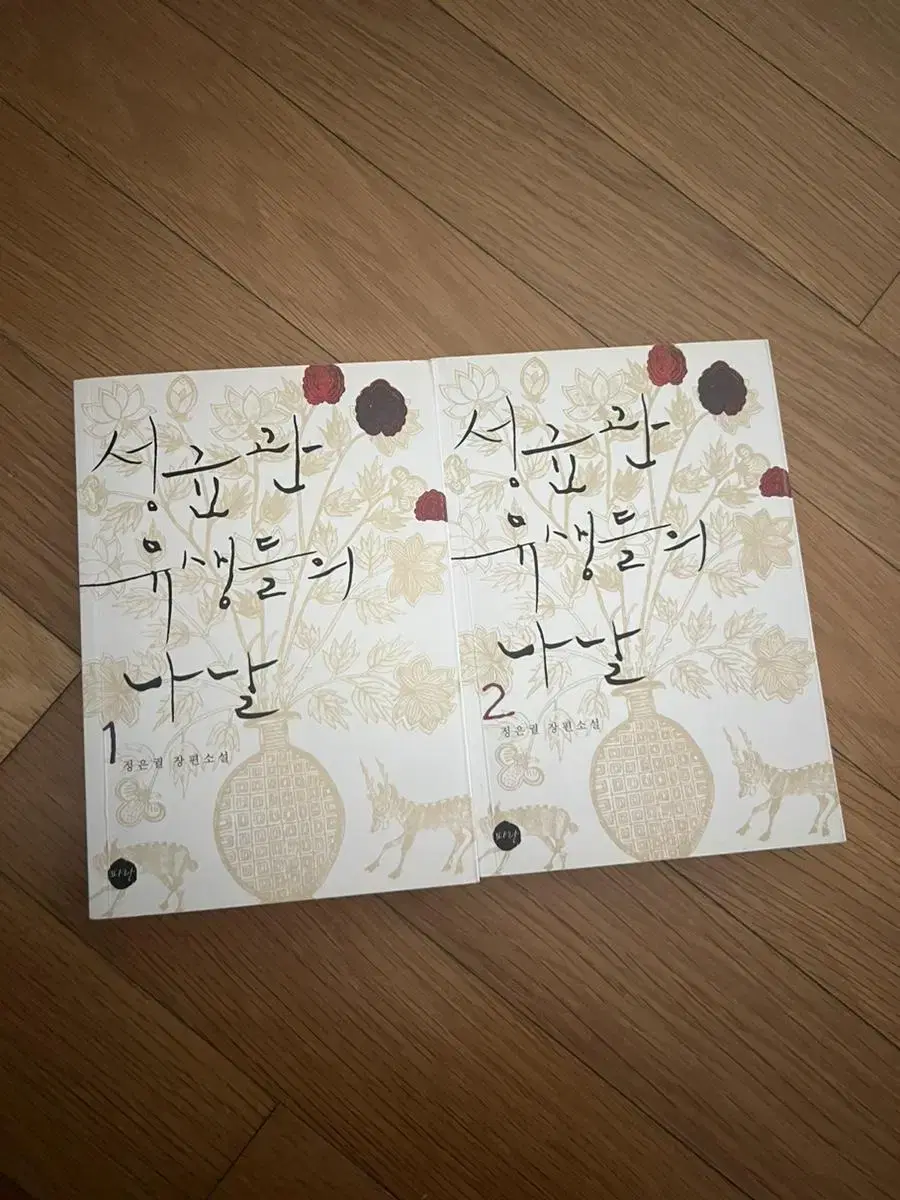 성균관
유생들의
나날
1
정은궐 장편소설
파란
성균관
유생들의
나날
2
정은궐 장편소설
파란